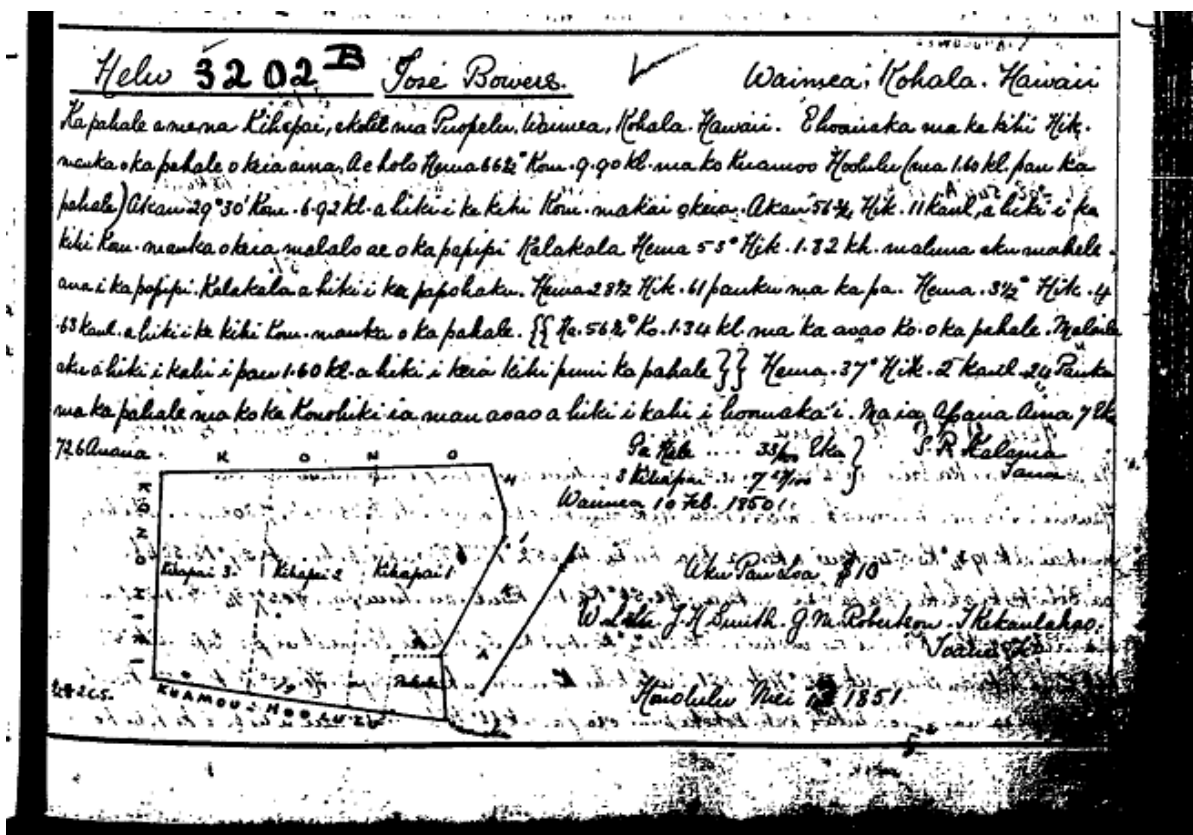 Helu 3202 B José Bowers. Waimea, Kohala. Hawaii
Ka pahale a me na Kihapai, ekolu ma Puopelu, Waimea, Kohala. Hawaii. E hoomaka ma ke kihi Hik.
mauka o ka pahale o keia aina, A e holo Hema 66½° Kom. 9.90 kl. ma ko Kuamoo Hoolulu (ma 1.60 kl. pau ka
pahale) Akau 29° 30' Kom. 6.92 kl. a hiki i ke kihi Kom. makai o keia. Akau 56¾ Hik. 11 kaul, a hiki i ka
kihi Kom. mauka o keia malalo ae o ka papipi Kalakala Hema 53° Hik. 1.82 kh. maluna aku mahele
ana i ka papipi. Kalakala a hiki i ka papohaku. Hema 28½ Hik. 61 pauku ma ka pa. Hema. 3½° Hik. 4
.63 kaul. a hiki i ke kihi Kom. mauka o ka pahale. {{ He. 56½° Ko. 1.34 kl. ma ka aoao Ko. o ka pahale. Malaila
aku a hiki i kahi i pau 1.60 kl. a hiki i keia kihi puni ka pahale }} Hema. 37° Hik. 2 kaul. 24 Pauku
ma ka pahale ma ko ke Konohiki ia mau aoao a hiki i kahi i hoomaka'i. Maia Apana Aina 7 Ek
726 Anana.
Pa Hale .... 33/100 Eka }
3 Kihapai 7 27/100
S. P. Kalama
Sana
Waimea 10 Feb. 1850.
K O N O H
K O N O H I K I
Kihapai 3. Kihapai 2 Kihapai 1
Pahale
KUAMOO HOOLULU
Uku Pau Loa $10
J. H. Smith. G. M. Robertson. J Kekaulahao
Honolulu Mei 1851.